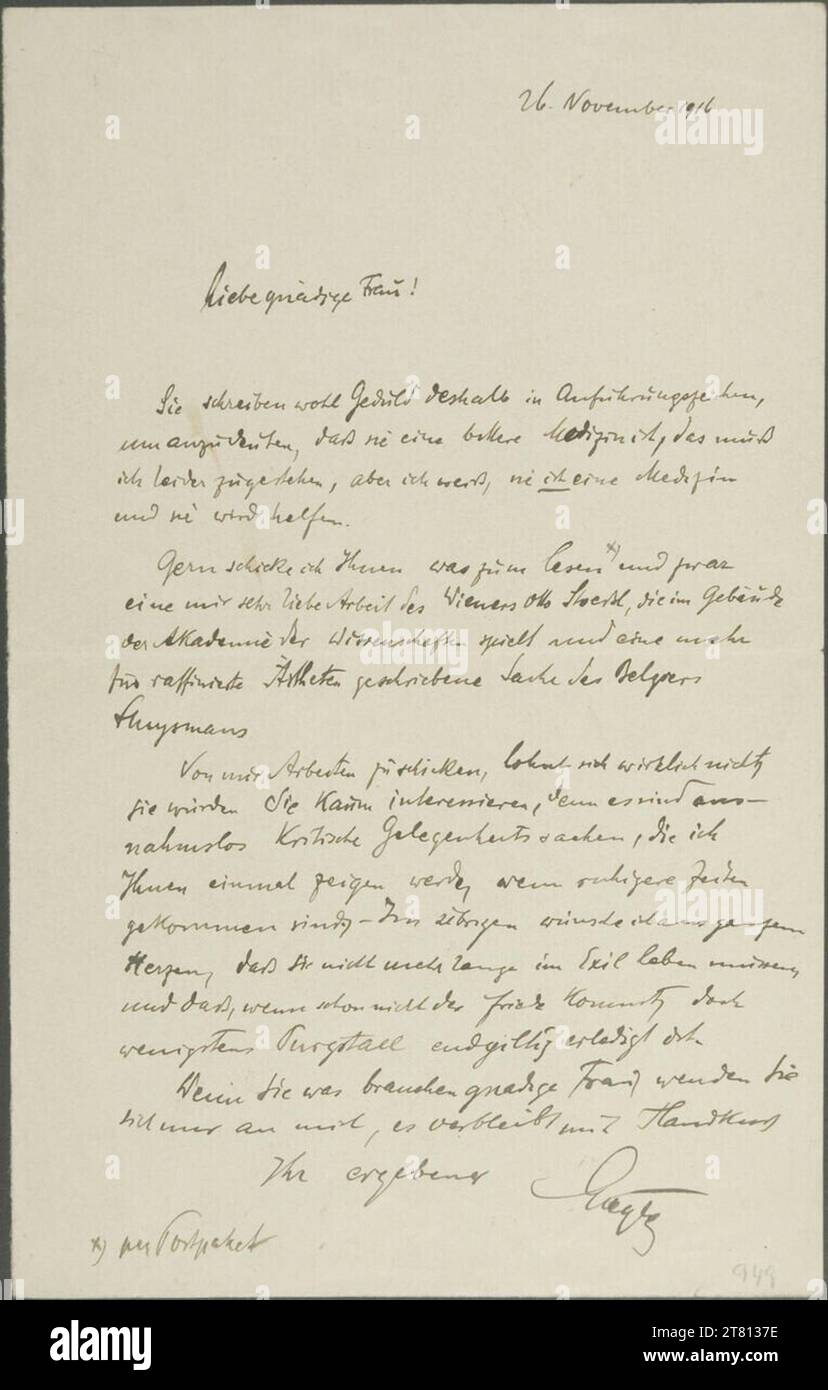 26. November 1916
Liebe gnädige Frau!
Sie schreiben wohl Geduld deshalb in Anführungszeichen,
um anzudeuten, daß sie eine bittere Medizin ist, das muß
ich leider zugestehen, aber ich weiß, sie ist eine Medizin
und sie wird helfen.
Gern schicke ich Ihnen was zum lesen *) und zwar
eine mir sehr liebe Arbeit des Wieners Otto Stoessl, die im Gebäude
der Akademie der Wissenschaften spielt und eine mehr
für raffinierte Ästheten geschriebene Sache des Belgiers
Huysmans
Von mir Arbeiten zu schicken, lohnt sich wirklich nicht,
sie würden Sie kaum interessieren, denn es sind aus-
nahmslos kritische Gelegenheitssachen, die ich
Ihnen einmal zeigen werde, wenn ruhigere Zeiten
gekommen sind. - Im übrigen wünsche ich aus ganzem
Herzen, daß Sie nicht mehr lange im Exil leben müssen,
und daß, wenn schon nicht der Friede kommt, doch
wenigstens Purgstall endgiltig erledigt ist.
Wenn Sie was brauchen gnädige Frau, wenden Sie
sich nur an mich, es verbleibt mit Handkuß
Ihr ergebener
*) per Postpaket
949
alamy
Image ID: 2T8137E
www.alamy.com